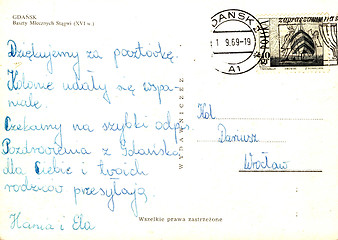 GDAŃSK
Baszty Mlecznych Stągwi (XVI w.)
Dziękujemy za pocztówkę.
Kolonie udały się wspa-
niale.
Czekamy na szybki odpis.
Pozdrowienia z Gdańska
dla Ciebie i twoich
rodziców przesyłają
Hania i Ela
Wszelkie prawa zastrzeżone
GDAŃSK
1 9.69-19
A1
Kol
Dariusz
Wrocław